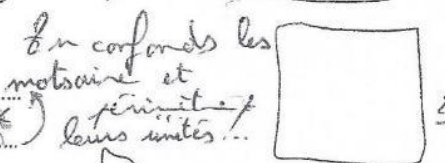 Tu confonds les
mots aire et
périmètre
leurs unités...